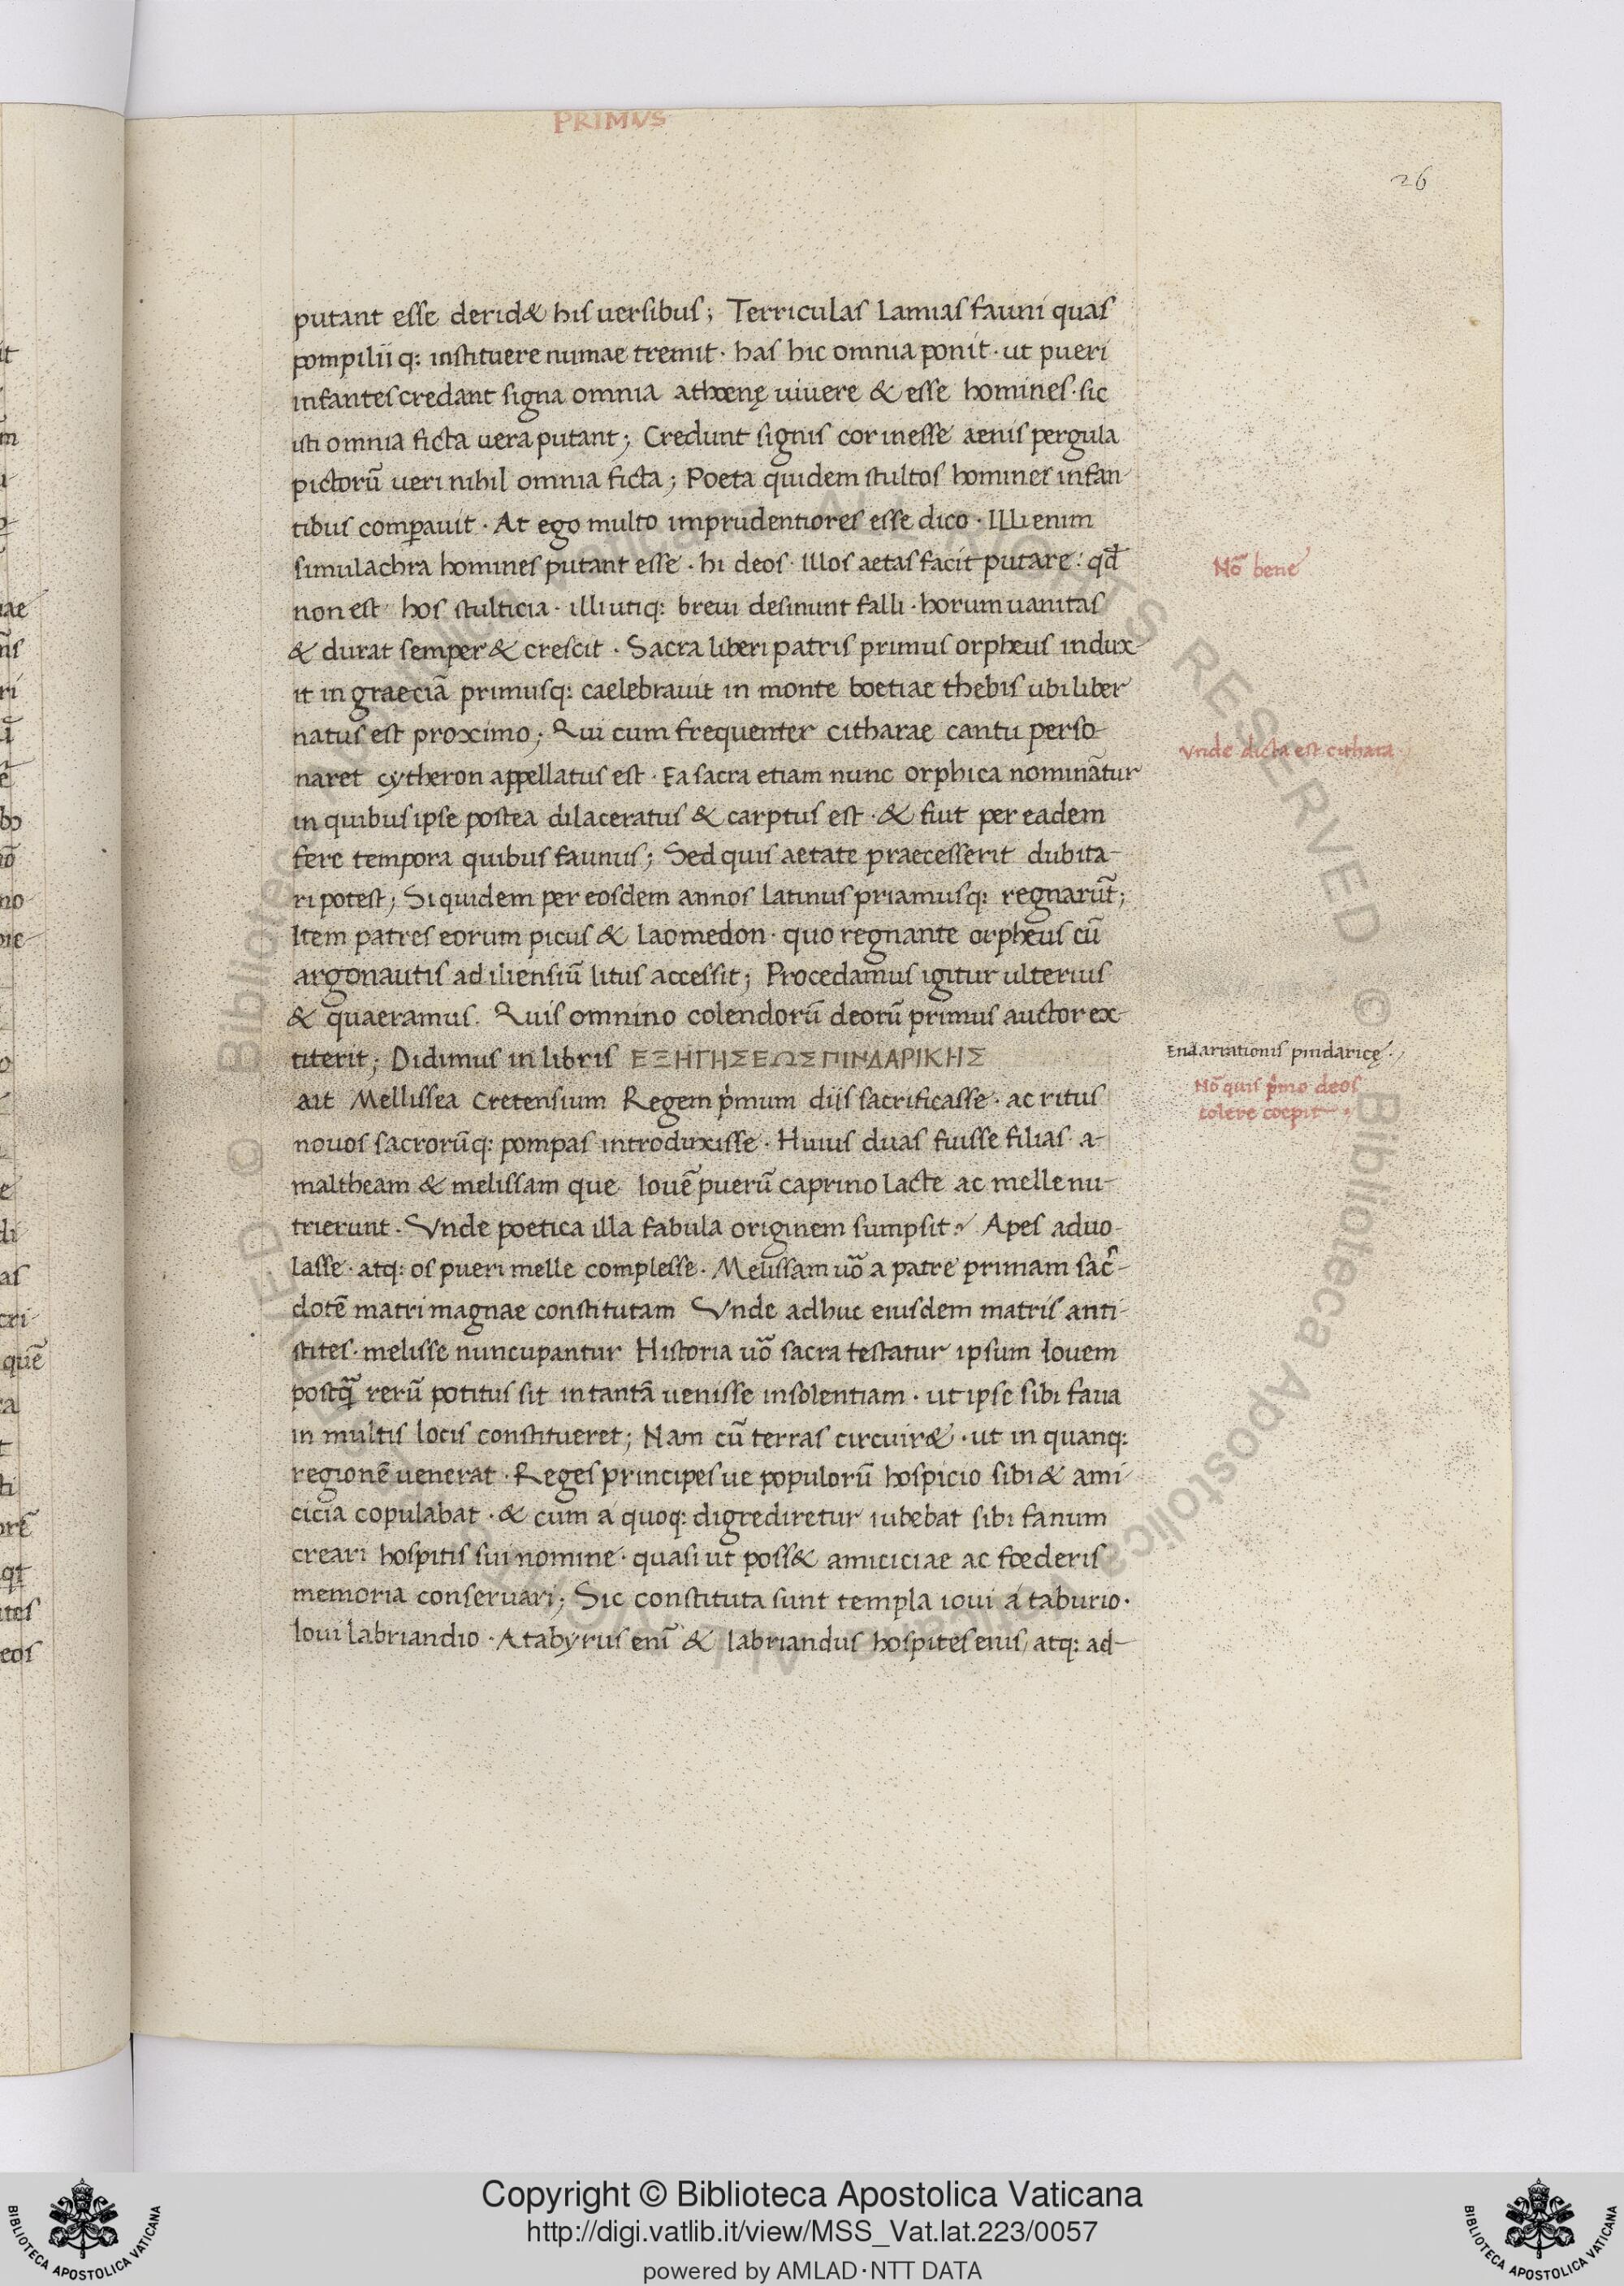 PRIMVS
26
putant esse derid& his uersibus; Terriculas Lamias fauni quas
pompilii q: instituere numae tremit · has hic omnia ponit · ut pueri
infantes credant signa omnia athoenę uiuere & esse homines · sic
isti omnia ficta uera putant; Credunt signis cor inesse aenis pergula
pictorū ueri nihil omnia ficta; Poeta quidem stultos homines infan-
tibus comꝑauit · At ego multo imprudentiores esse dico · Illi enim
simulachra homines putant esse · hi deos · Illos aetas facit putare : qd̄
non est · hos stulticia · illi utiq: breui desinunt falli · horum uanitas
& durat semper & crescit · Sacra liberi patris primus orpheus indux-
it in graeciā primusq: caelebrauit in monte boetiae thebis ubi liber
natus est proximo; Qui cum frequenter citharae cantu perso-
naret cytheron appellatus est · Ea sacra etiam nunc orphica nominātur
in quibus ipse postea dilaceratus & carptus est · & fuit per eadem
fere tempora quibus faunus; Sed quis aetate praecesserit dubita-
ri potest; Si quidem per eosdem annos latinus priamusq: regnarūt;
Item patres eorum picus & laomedon · quo regnante orpheus cū
argonautis ad iliensiū litus accessit; Procedamus igitur ulterius
& quaeramus. Quis omnino colendorū deorū primus auctor ex-
titerit; Didimus in libris ΕΞΗΓΗΣΕΩΣ ΠΙΝΔΑΡΙΚΗΣ
ait Mellissea Cretensium Regem p̍mum diis sacrificasse · ac ritus
nouos sacrorūq: pompas introduxisse · Huius duas fuisse filias a-
maltheam & melissam que Iouē puerū caprino lacte ac melle nu-
trierunt · Vnde poetica illa fabula originem sumpsit · Apes aduo-
lasse · atq: os pueri melle complesse · Melissam uō a patre primam sac̄-
dotē matri magnae constitutam Vnde adhuc eiusdem matris anti-
stites · melisse nuncupantur Historia uō sacra testatur ipsum Iouem
postq̄ rerū potitus sit in tantā uenisse insolentiam · ut ipse sibi faua
in multis locis constitueret; Nam cū terras circuir& · ut in quanq:
regionē uenerat · Reges principes ue populorū hospicio sibi & ami-
cicia copulabat · & cum a quoq: digrediretur iubebat sibi fanum
creari hospitis sui nomine · quasi ut poss& amiciciae ac foederis
memoria conseruari; Sic constituta sunt templa ioui a taburio ·
Ioui labriandio · Atabyrus enī & labriandus hospites eius atq: ad-
Nō bene
Vnde dicta est cithara
Enarrationis pindaricę ·
Nō quis p̍mo deos
colere coepit ·
Copyright © Biblioteca Apostolica Vaticana
http://digi.vatlib.it/view/MSS_Vat.lat.223/0057
powered by AMLAD·NTT DATA
BIBLIOTECA APOSTOLICA VATICANA
BIBLIOTECA APOSTOLICA VATICANA